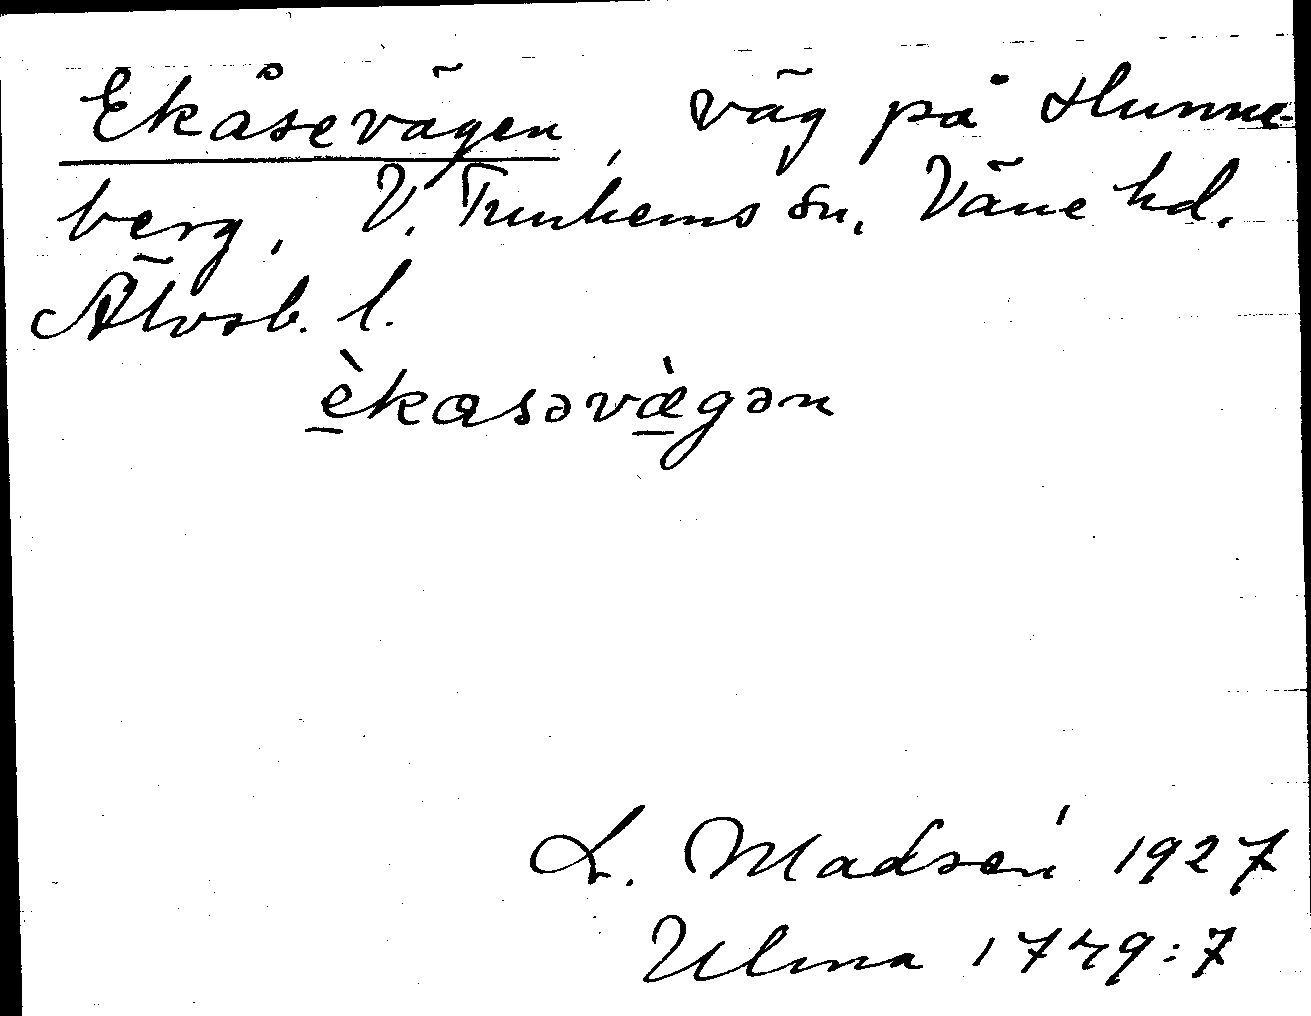 Ekåsevägen, väg på Hunne-
berg, V. Tunhems sn, Väne hd.
Älvsb. l.
èkasəvæ̀gən
L. Madsén 1927
Ulma 1749:7